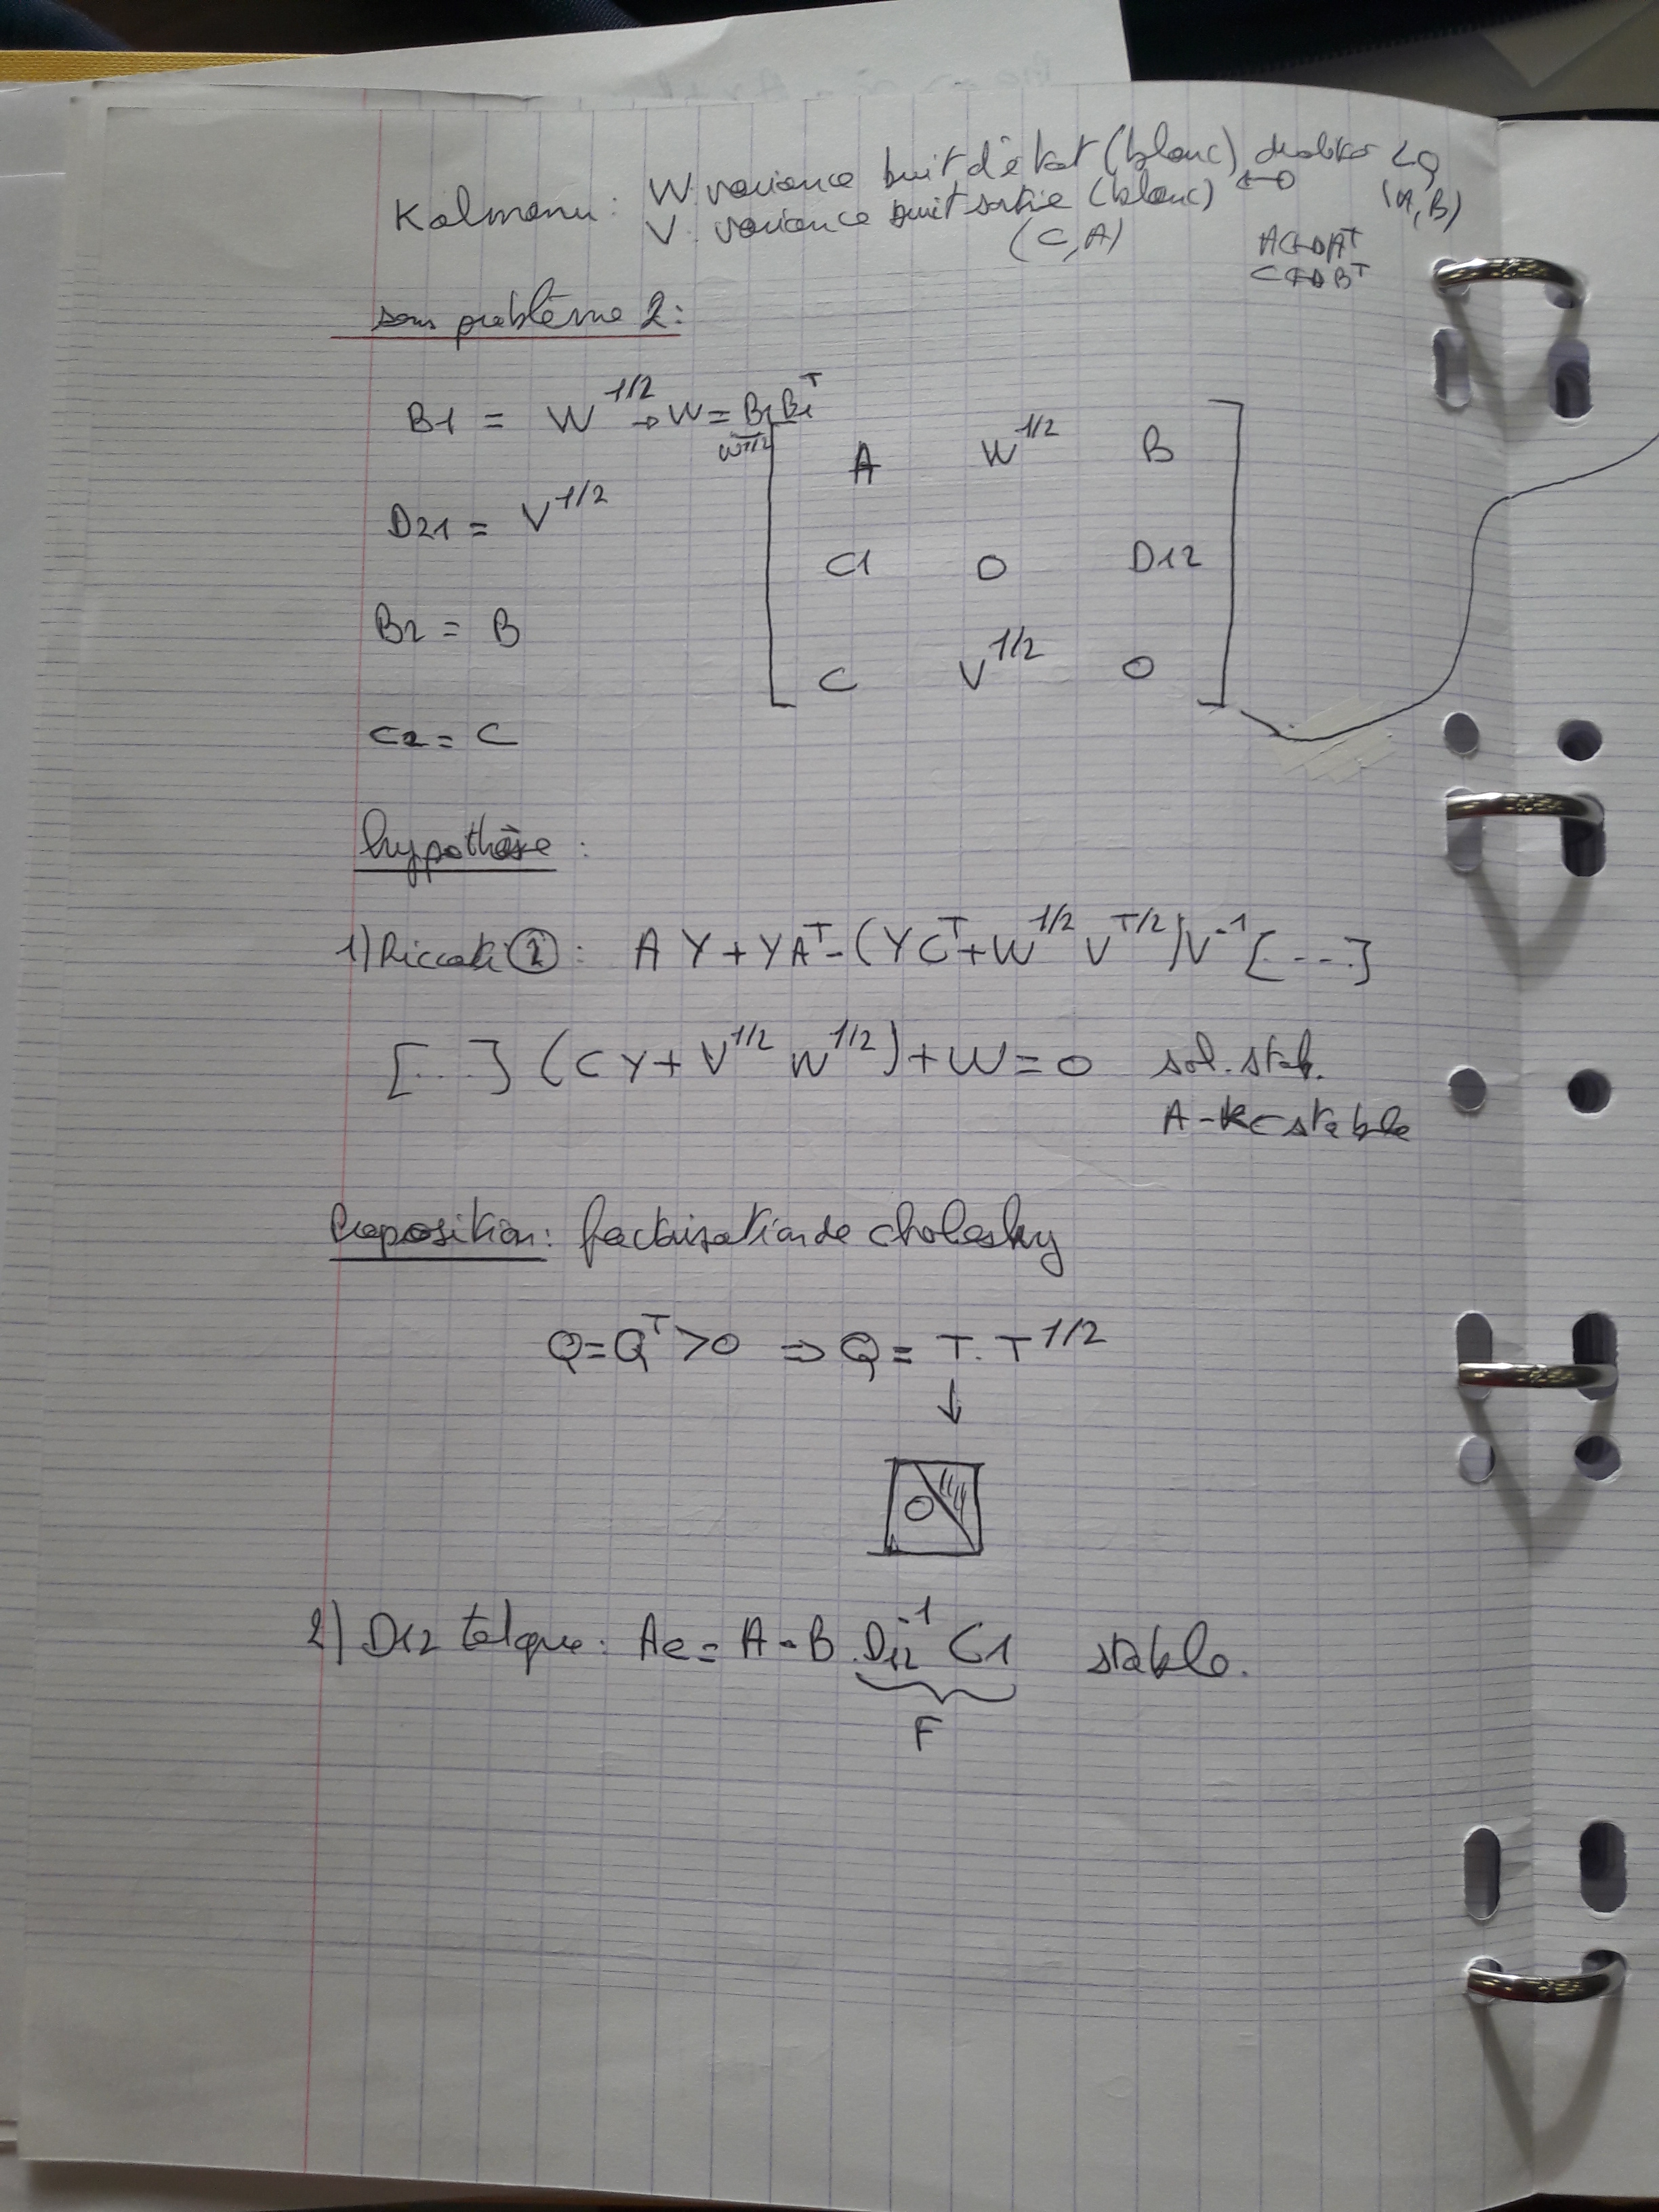 Kalmann: W: variance bruit d'état (blanc) ↔ LQ
V: variance bruit sortie (blanc) (A,B)
(C,A) A↔A^T
C↔B^T
sous problème 2:
B1 = W^{1/2} → W = B1 B1^T
W^{1/2}
D21 = V^{1/2}
B2 = B
C2 = C
[ A W^{1/2} B
C1 0 D12
C V^{1/2} 0 ]
hypothèse :
1) Riccati ②: A Y + Y A^T - (Y C^T + W^{1/2} V^{T/2}) V^{-1} [....]
[...] (C Y + V^{1/2} W^{1/2}) + W = 0 sol. stab.
A - KC stable
Proposition: factorisation de cholesky
Q = Q^T > 0 ⇒ Q = T . T^{1/2}
↓
0
2) D12 tel que: Ac = A - B . D12^{-1} C1 stable.
F